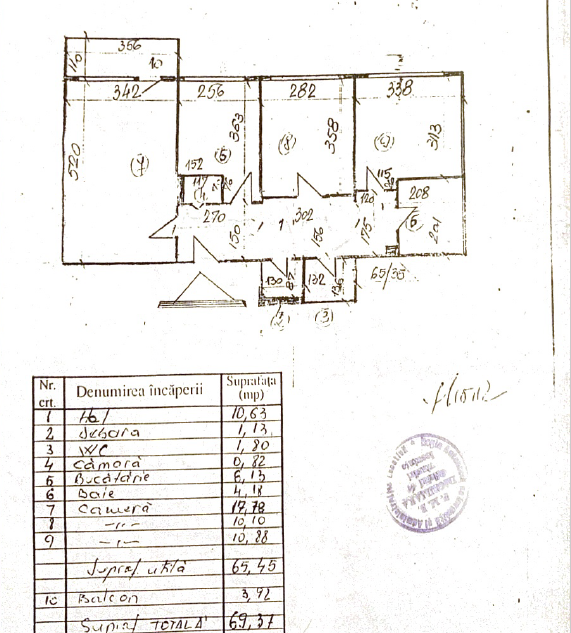 356
110
10
342
256
282
338
520
363
358
313
7
5
8
9
152
117
4
115
120
208
270
302
150
156
175
6
201
130
87
132
136
65/35
2
3
Nr. crt. Denumirea încăperii Suprafața (mp)
1 Hol 10,63
2 debara 1,13
3 WC 1,80
4 cămară 0,82
5 Bucătărie 8,13
6 Baie 4,18
7 Cameră 17,78
8 -,,- 10,10
9 -,,- 10,88
Supraf. utilă 65,45
10 Balcon 3,92
Supraf TOTALĂ 69,37